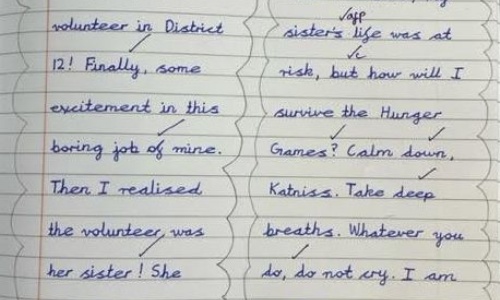 volunteer in District
12! Finally, some
excitement in this
boring job of mine.
Then I realised
the volunteer, was
her sister! She
√app
sister's life was at
√c
risk, but how will I
survive the Hunger
Games? Calm down,
Katniss. Take deep
breaths. Whatever you
do, do not cry. I am